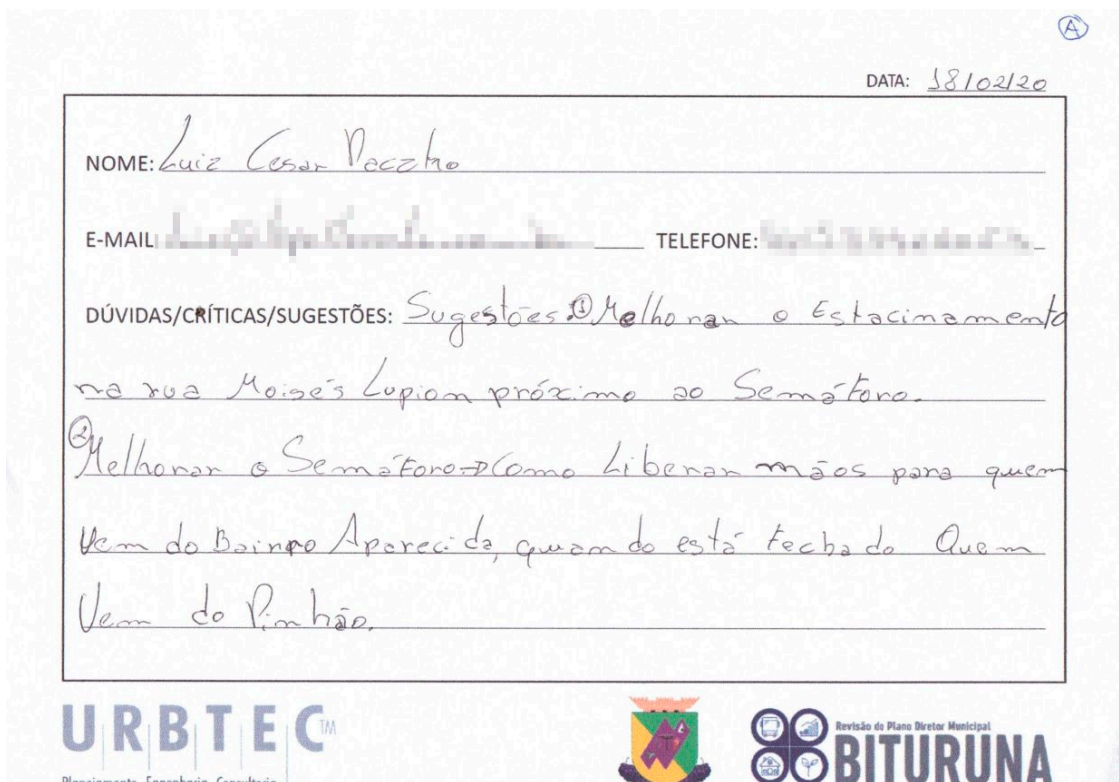 A
DATA: 18/02/20
NOME: Luiz Cesar
E-MAIL: TELEFONE:
DÚVIDAS/CRÍTICAS/SUGESTÕES: Sugestões: ① Melhorar o Estacinamento
na rua Moisés Lupion próximo ao Semáforo.
② Melhorar o Semáforo → Como Liberar mãos para quem
Vem do Bairro Aparecida, quando está fechado Quem
Vem do Pinhão.
URBTEC TM
Planejamento Engenharia Consultoria
Revisão do Plano Diretor Municipal
BITURUNA